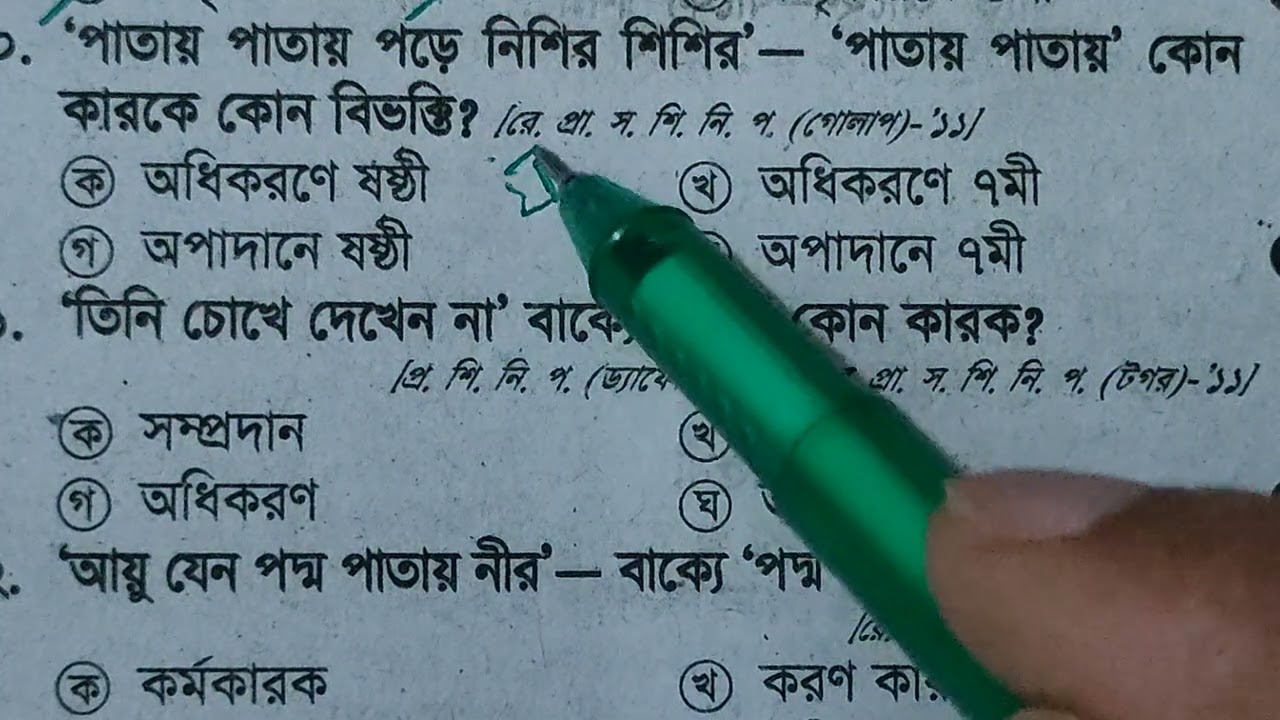 ‘পাতায় পাতায় পড়ে নিশির শিশির’— ‘পাতায় পাতায়’ কোন
কারকে কোন বিভক্তি? [রে. প্রা. স. শি. নি. প. (গোলাপ)-’১১]
ক অধিকরণে ষষ্ঠী খ অধিকরণে ৭মী
গ অপাদানে ষষ্ঠী অপাদানে ৭মী
‘তিনি চোখে দেখেন না’ কোন কারক?
[প্র. শি. নি. প. প্রা. স. শি. নি. প. (টগর)-’১১]
ক সম্প্রদান খ
গ অধিকরণ ঘ
‘আয়ু যেন পদ্ম পাতায় নীর’— বাক্যে ‘পদ্ম
ক কর্মকারক খ করণ